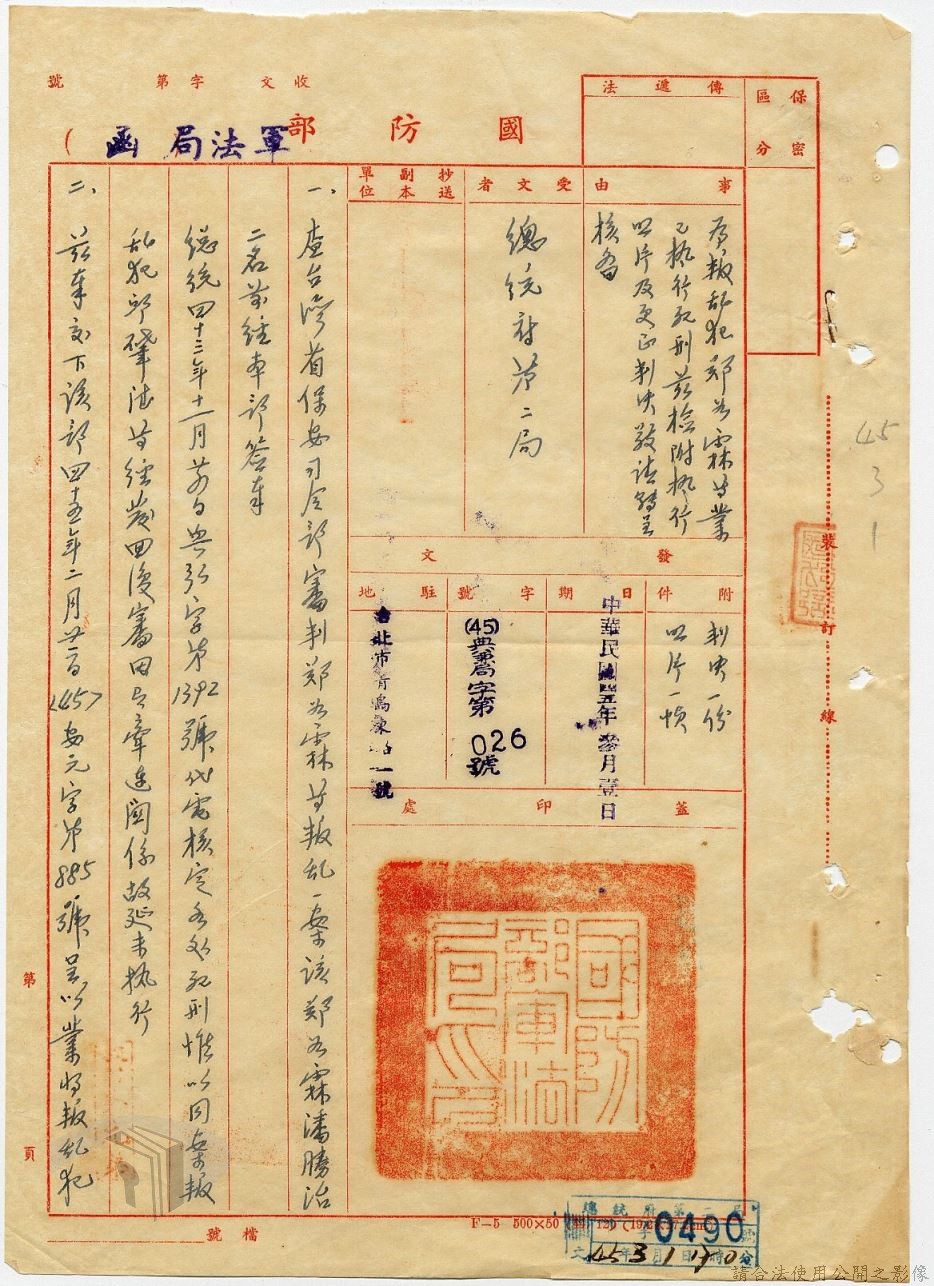 收文 字第 號
國防部軍法局 函 (
保密區分
傳遞法
事由
為叛亂犯鄭為霖等業
已執行死刑茲檢附執行
照片及更正判決敬請轉呈
核備
受文者
總統府第二局
抄送副本單位
發文
附件
判決一份
照片一幀
日期
中華民國四五年叁月壹日
字號
(45)典
局字第
026號
駐地
台北市青島東路一號
蓋印處
國防部軍法局印
一、查台灣省保安司令部審判鄭為霖等叛亂一案該鄭為霖潘勝治
二名前經本部簽奉
總統四十三年十一月
日典
字第1392號代電核定各處死刑惟以同案叛
亂犯邱肇
等經發回復審因與牽連關係故延未執行
二、茲奉交下該部四十五年二月廿
日(45)安元字第885號呈以業將叛亂犯
裝訂線
45
3
1
第 頁
檔號
F-5 500×50
總統府第二局
0490
文 45年3月1日
時
分
請合法使用公開之影像